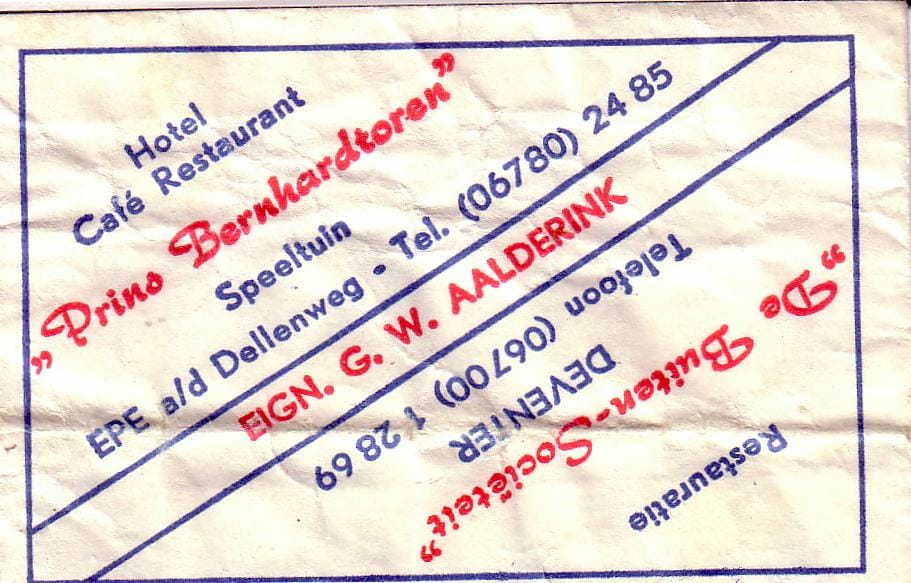 Hotel
Café Restaurant
„Prins Bernhardtoren”
Speeltuin
EPE a/d Dellenweg - Tel. (06780) 24 85
EIGN. G. W. AALDERINK
Restauratie
„De Buiten-Sociëteit”
DEVENTER
Telefoon (06700) 1 28 69